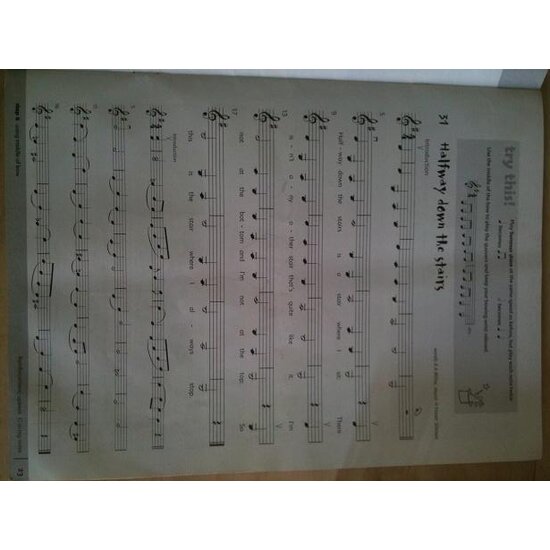 try this!
Play bananas gloss at the same speed as before, but play each note twice
becomes
becomes
Use the middle of the bow to play the quavers and keep your bowing wrist relaxed.
31 Halfway down the stairs
Introduction
5
Half - way down the stairs is a stair where I sit. There
9
is - n't a - ny o - ther stair that's quite like it. I'm
13
not at the bot - tom and I'm not at the top. So
17
this is the stair where I al - ways stop.
Introduction
5
11
16
step 5: using middle of bow
23